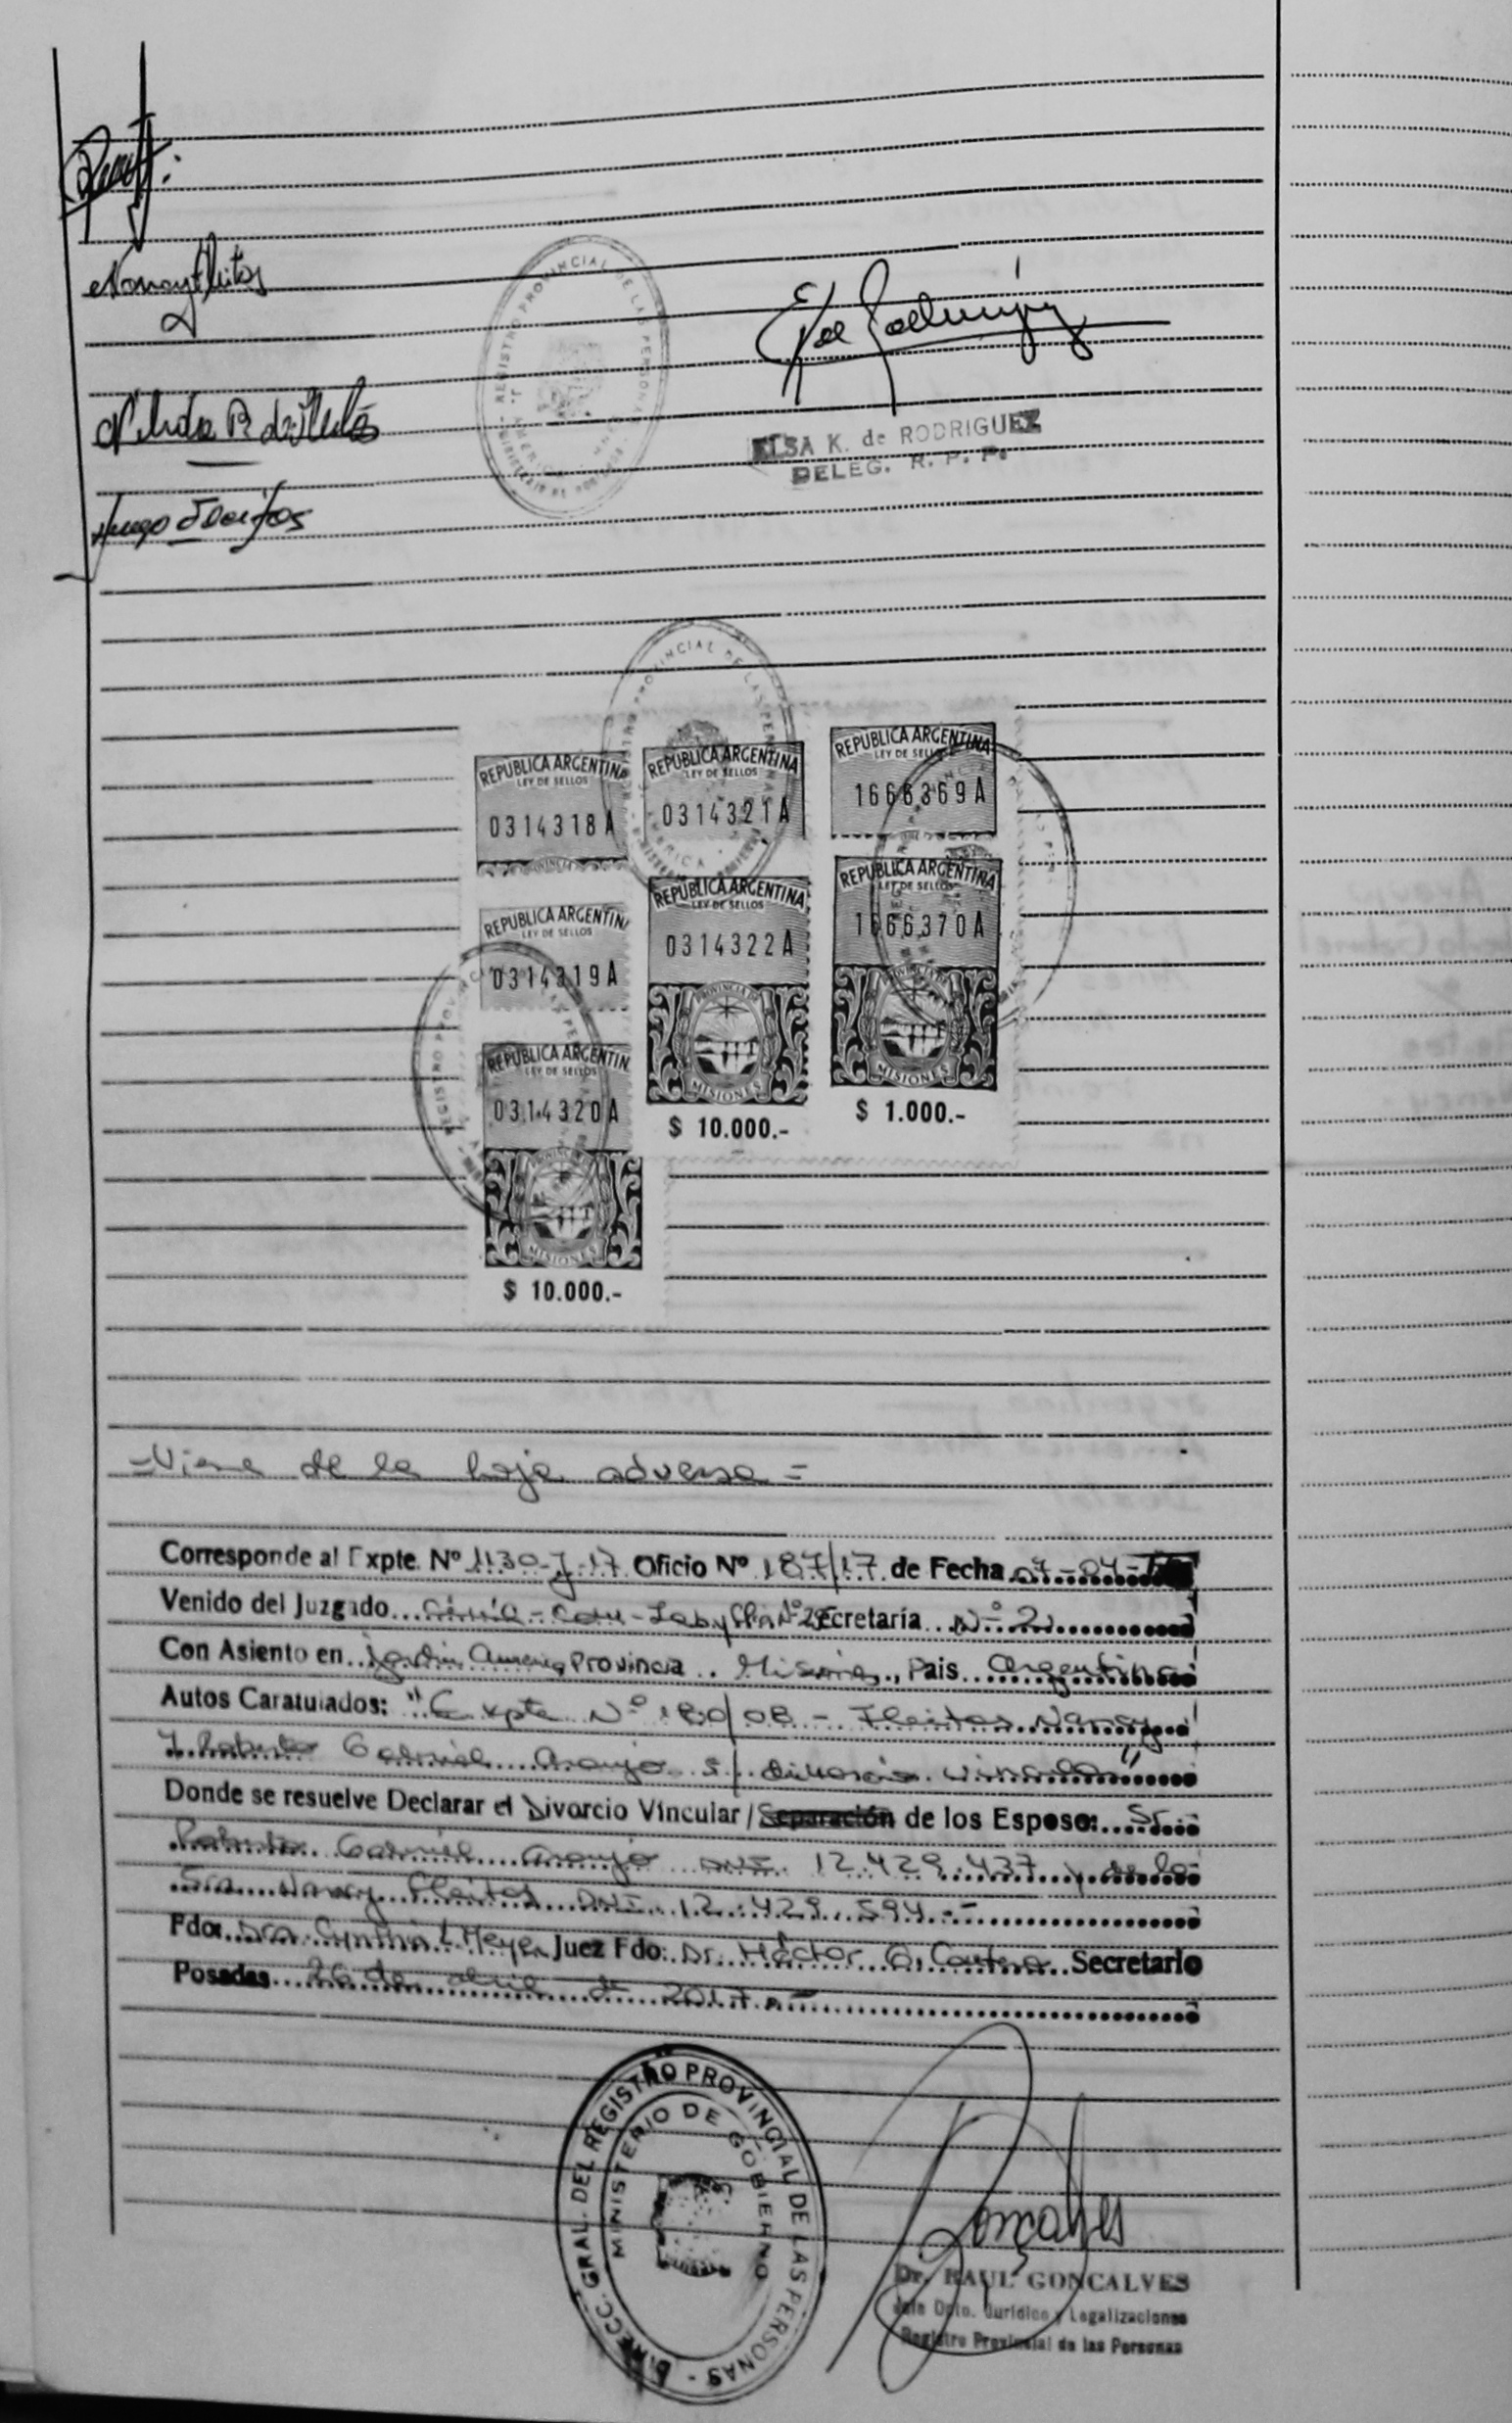 Nancy Fleitas
Nelida R. de Fleitas
Hugo Fleitas
REGISTRO PROVINCIAL DE LAS PERSONAS
ELSA K. de RODRIGUEZ
DELEG. R. P. P.
REPUBLICA ARGENTINA
LEY DE SELLOS
0314318A
REPUBLICA ARGENTINA
LEY DE SELLOS
0314321A
REPUBLICA ARGENTINA
LEY DE SELLOS
1666369A
REPUBLICA ARGENTIN
LEY DE SELLOS
0314319A
REPUBLICA ARGENTINA
LEY DE SELLOS
0314322A
PROVINCIA DE
MISIONES
$ 10.000.-
REPUBLICA ARGENTINA
LEY DE SELLOS
1666370A
PROVINCIA DE
MISIONES
$ 1.000.-
REPUBLICA ARGENTIN
LEY DE SELLOS
0314320A
PROVINCIA DE
MISIONES
$ 10.000.-
-Viene de la hoja adversa=
Corresponde al Expte. Nº 1130-J-17 Oficio Nº 187/17 de Fecha 07-04-
Venido del Juzgado Civil-Com-Lab y Flia Nº Secretaría Nº 2
Con Asiento en Jardin America Provincia Misiones, Pais Argentina
Autos Caratulados: "Expte Nº 180/08 - Fleitas Nancy
y Roberto Gabriel Araujo s/ divorcio vincular"
Donde se resuelve Declarar el Divorcio Vincular/Separación de los Esposo: Sr.
Roberto Gabriel Araujo DNI 12.429.437 y de la
Sra Nancy Fleitas DNI 12.429.594.-
Fdo: Dra. Cynthia L Meyer Juez Fdo: Dr. Héctor Secretario
Posadas 26 de abril de 2017.-
DIRECC. GRAL. DEL REGISTRO PROVINCIAL DE LAS PERSONAS -
MINISTERIO DE GOBIERNO
Goncalves
Dr. RAUL GONCALVES
Jefe Dpto. Jurídico y Legalizaciones
Registro Provincial de las Personas